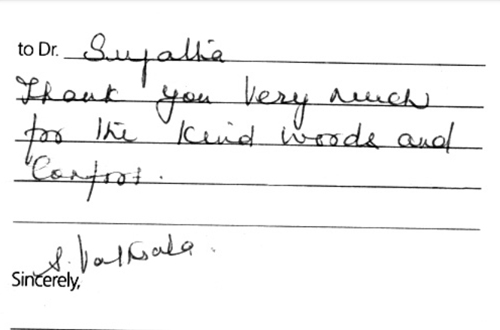 to Dr. Sujatha
Thank you Very much
for the kind words and
Comfort.
S. Valsala.
Sincerely,